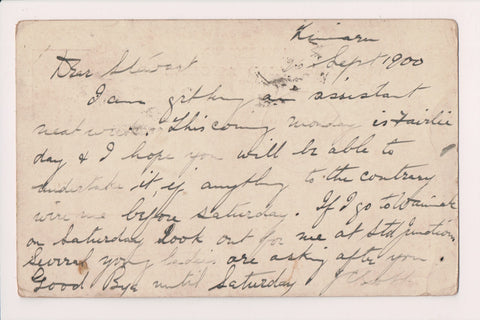 Sept 1900
Dear Stewart
I am getting an assistant
next week. This coming monday is Fairlie
day & I hope you will be able to
undertake it if anything to the contrary
wire me before Saturday. If I go to
on Saturday look out for me at Std Junction
Several young ladies are asking after you
Good Bye until Saturday